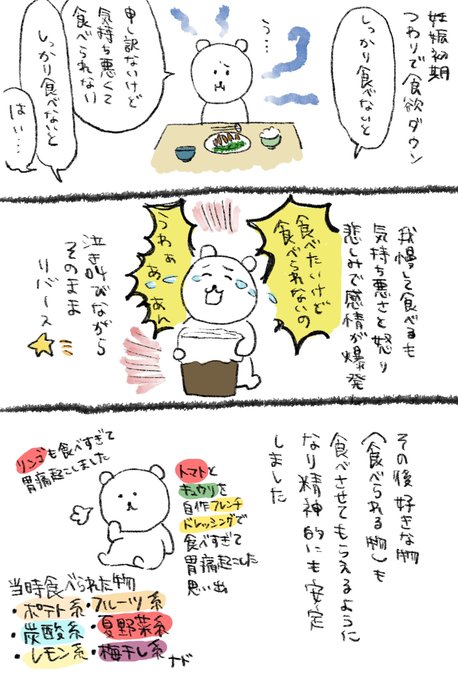 妊娠初期
つわりで食欲ダウン
しっかり食べないと
う…
申し訳ないけど
気持ち悪くて
食べられない
しっかり食べないと
はい…
我慢して食べるも
気持ち悪さと怒り
悲しみで感情が爆発
食べたいけど
食べられないの
うわぁぁあん
泣き叫びながら
そのまま
リバース
その後好きな物
(食べられる物)も
食べさせてもらえるように
なり精神的にも安定
しました
トマトと
キュウリを
自作フレンチ
ドレッシングで
食べすぎて
胃痛起こした
思い出
リンゴも食べすぎて
胃痛起こしました
当時食べられた物
・ポテト系・フルーツ系
・炭酸系・夏野菜系
・レモン系・梅干し系ナド